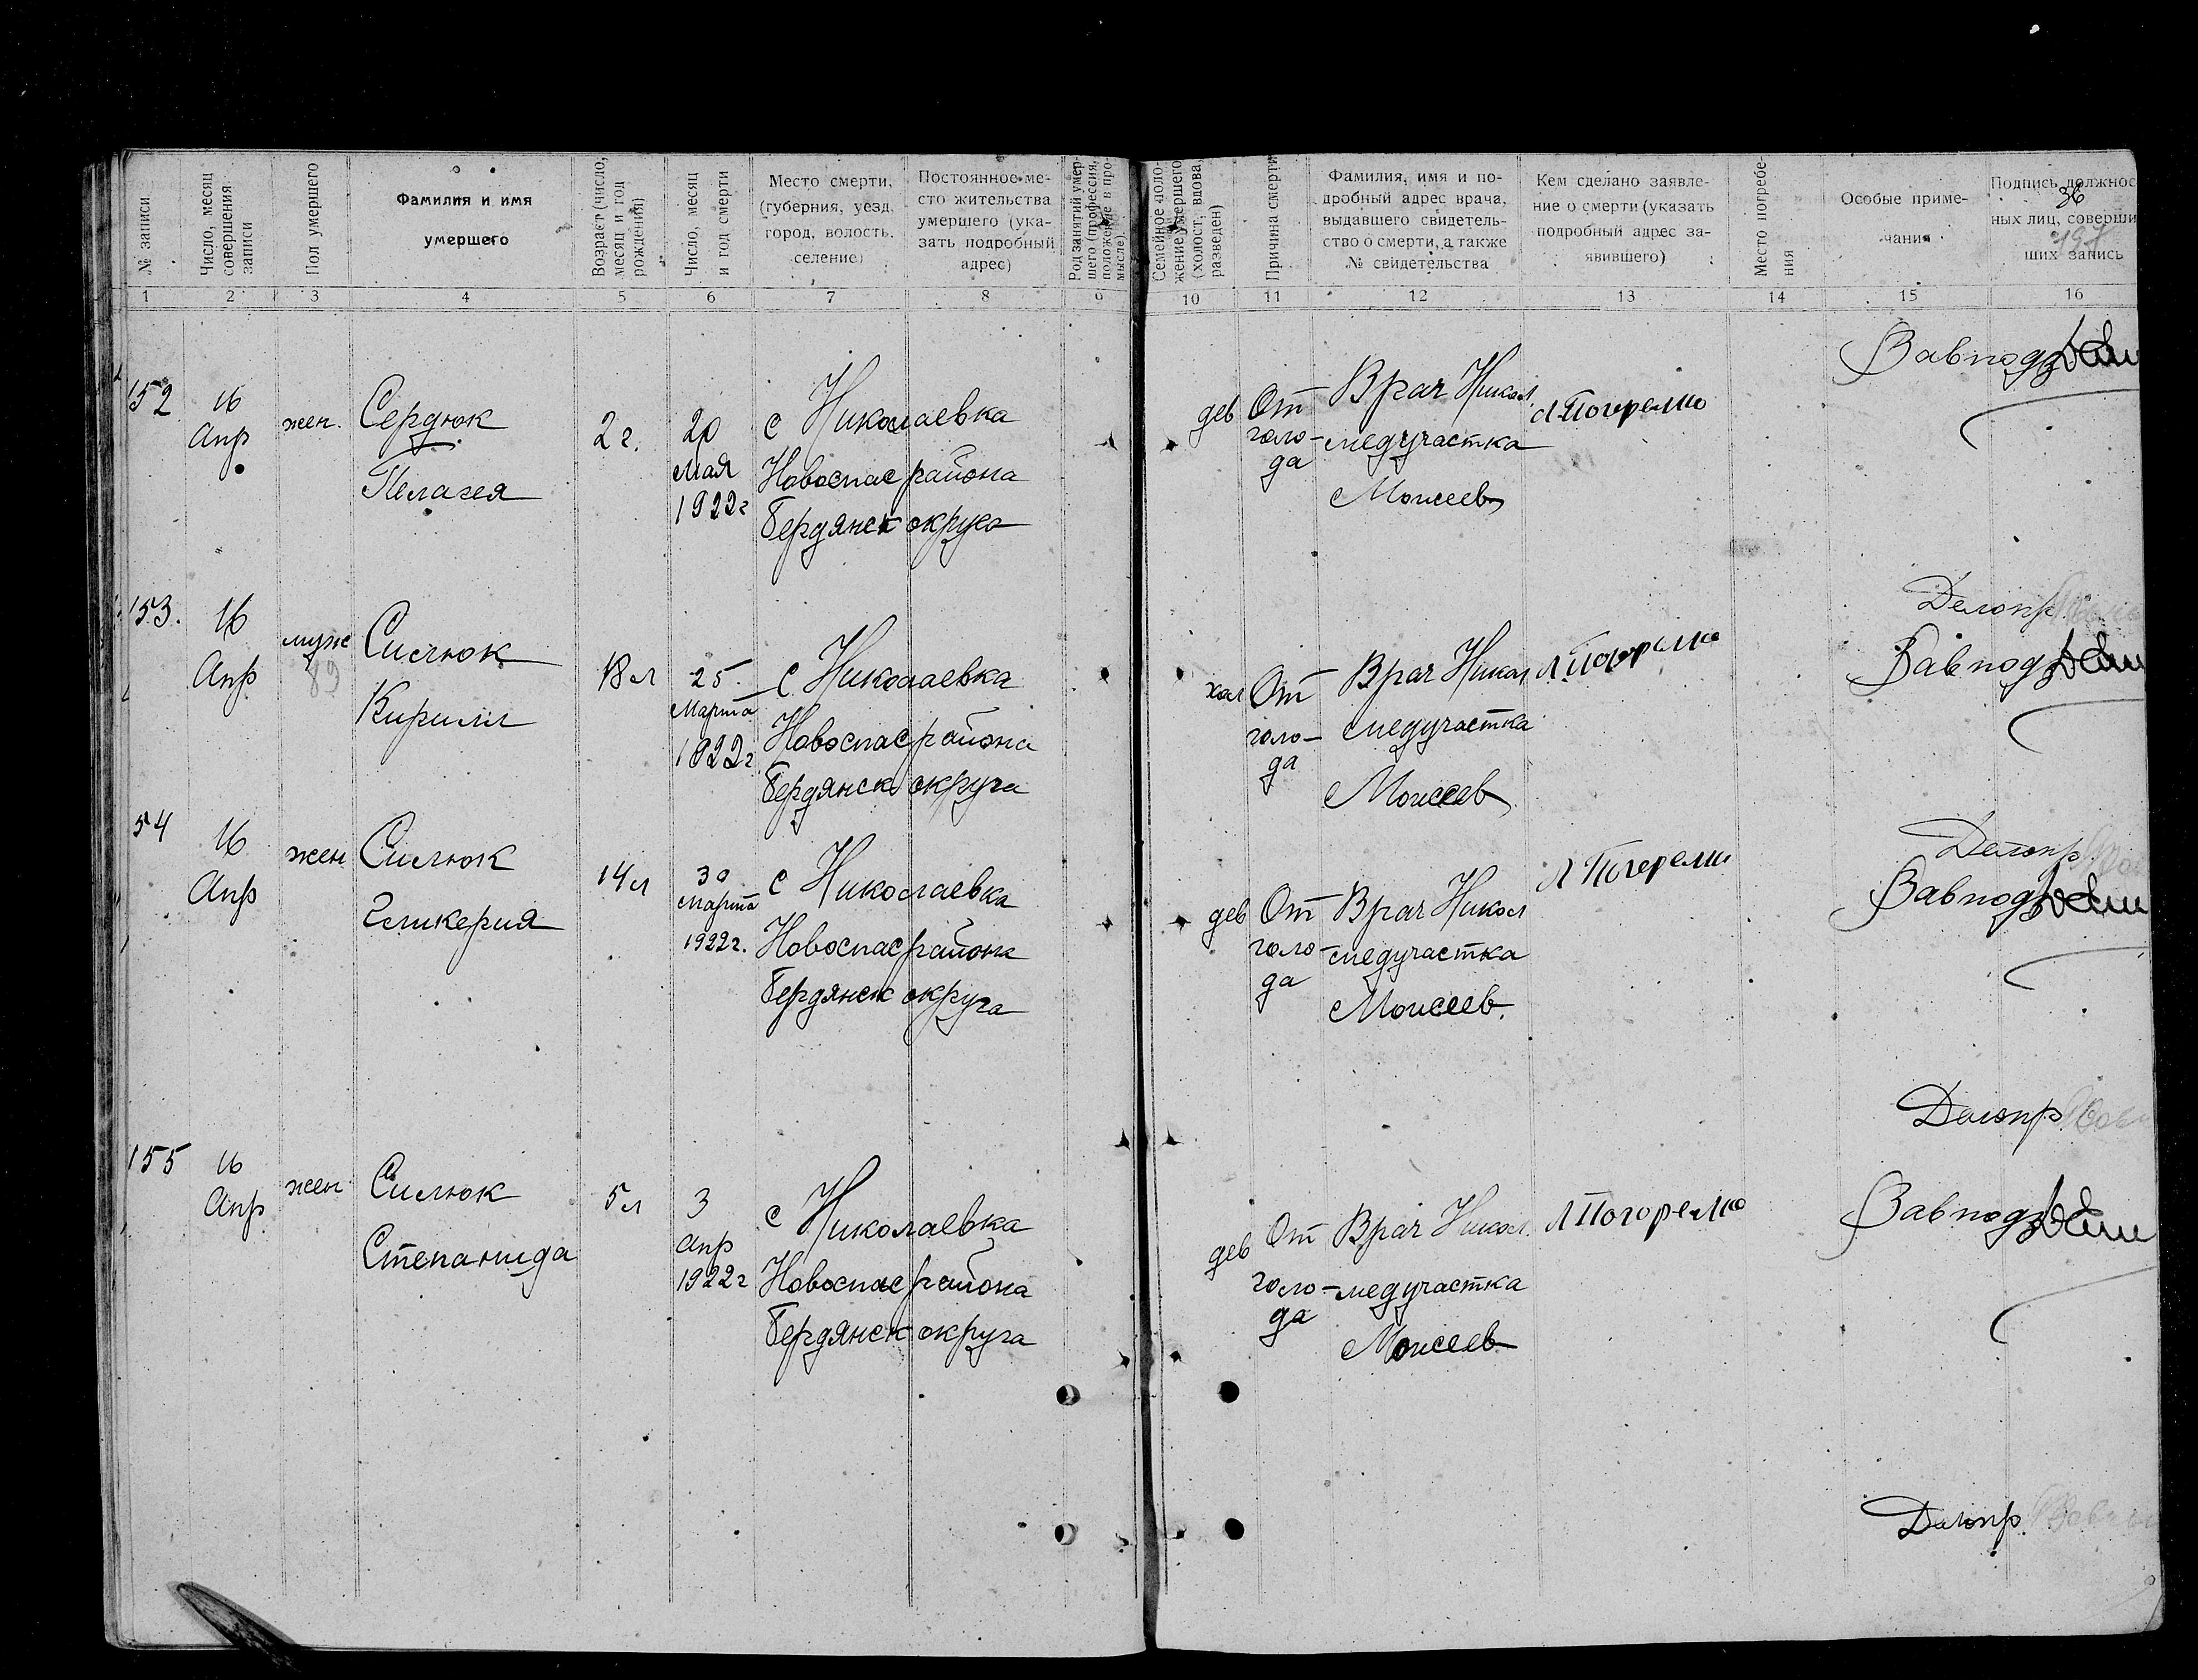 № записи
Число, месяц
совершения
записи
Пол умершего
Фамилия и имя
умершего
Возраст (число,
месяц и год
рождения)
Число, месяц
и год смерти
Место смерти,
(губерния, уезд,
город, волость,
селение)
Постоянное ме-
сто жительства
умершего (ука-
зать подробный
адрес)
Род занятий умер-
шего (профессия,
положение в про-
мысле).
Семейное поло-
жение умершего
(холост, вдова,
разведен)
Причина смерти
Фамилия, имя и по-
дробный адрес врача,
выдавшего свидетель-
ство о смерти, а также
№ свидетельства
Кем сделано заявле-
ние о смерти (указать
подробный адрес за-
явившего)
Место погребе-
ния
Особые приме-
чания
Подпись должнос
ных лиц, соверши
ших запись
1 2 3 4 5 6 7 8 9 10 11 12 13 14 15 16
152
16
Апр
жен.
Сердюк
Пелагея
2 г.
20
мая
1922 г
с Николаевка
Новоспас района
Бердянск округа
дев
От
голо-
да
Врач Никол.
медучастка
Моисеев
Завподз
Делопр
153.
16
Апр
муж
89
Сислюк
Кирилл
18 л
25.
Марта
1922 г
с Николаевка
Новоспас района
Бердянск округа
хол
От
голо-
да
Врач Никол
медучастка
Моисеев
Завподз
Делопр
54
16
Апр
жен
Сислюк
Гликерия
14 л
30
марта
1922 г.
с Николаевка
Новоспас района
Бердянск округа
дев
От
голо-
да
Врач Никол
медучастка
Моисеев.
Завподз
Делопр
155
16
Апр
жен
Сислюк
Степанида
5 л
3
апр
1922 г
с Николаевка
Новоспас района
Бердянск округа
дев
От
голо-
да
Врач Никол.
медучастка
Моисеев
Завподз
Делопр.